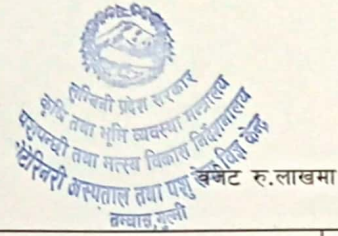 लुम्बिनी प्रदेश सरकार
कृषि तथा भूमि व्यवस्था मन्त्रालय
पशुपन्छी तथा मत्स्य विकास निर्देशनालय
भेटेरिनरी अस्पताल तथा पशु विज्ञ केन्द्र
तम्घास, गुल्मी
बजेट रु.लाखमा